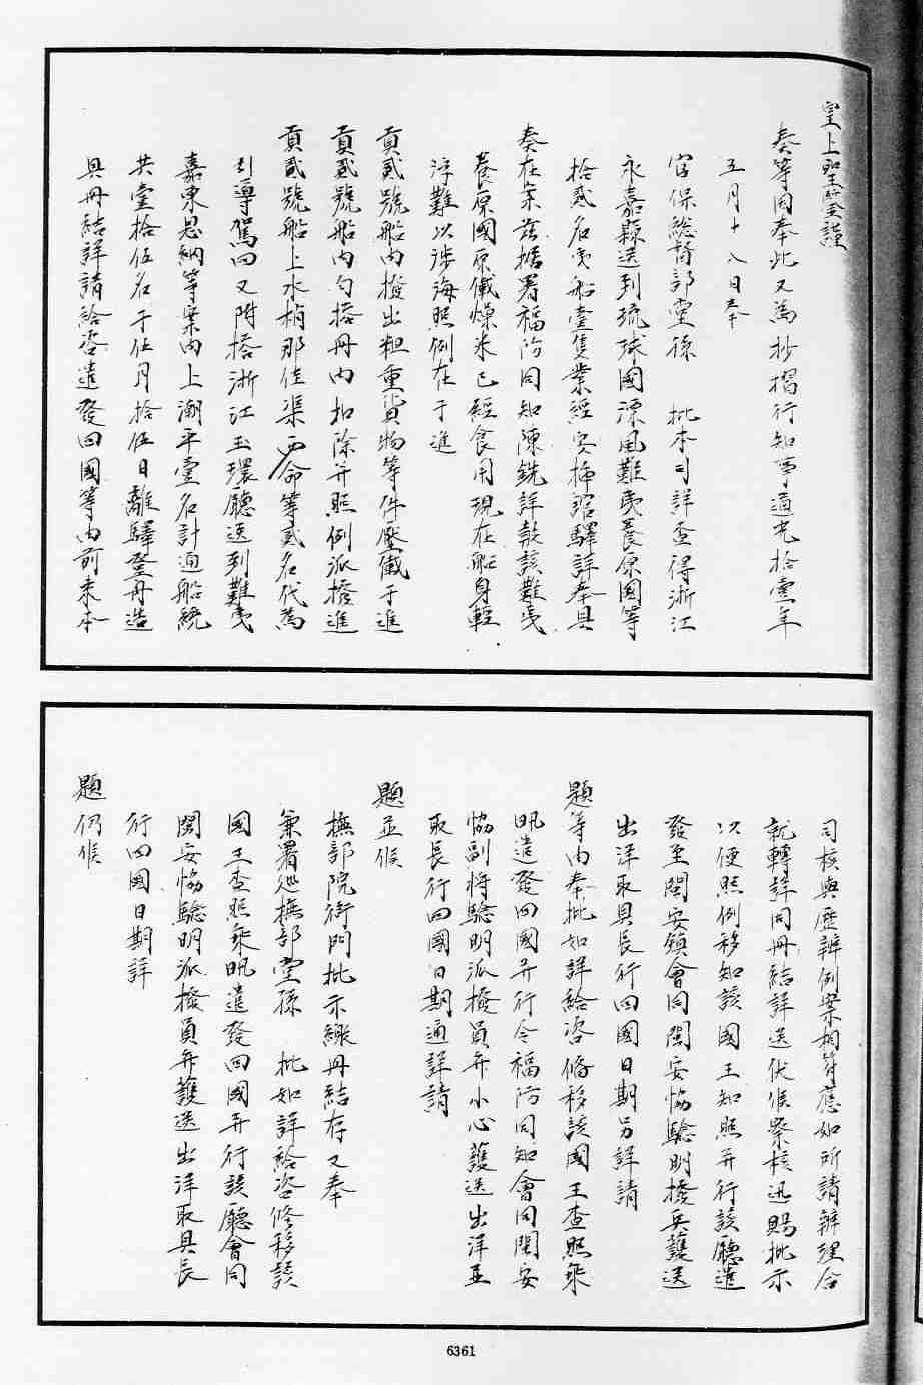 皇上聖鑒謹
奏等因奉此又為抄摺行知事道光拾壹年
五月十八日奉
宮保總督部堂孫　批本司詳查得浙江
永嘉縣送到琉球國漂風難夷養原國等
拾貳名夷船壹隻業經安插琯驛詳奉具
奏在案茲據署福防同知陳銑詳報該難夷
養原國原儎燥米已經食用現在船身輕
浮難以涉海照例在于進
貢貳號船內撥出粗重貨物等件壓儎于進
貢貳號船內勻搭冊內扣除并照例派撥進
貢貳號船上水梢那佳渠西命等貳名代為
引導駕回又附搭浙江玉環廳送到難夷
嘉東恩納等案內上潮平壹名計通船統
共壹拾伍名于伍月拾伍日離驛登舟造
具冊結詳請給咨遣發回國等由前來本
司核與歷辦例案相符應如所請辦理合
就轉詳同冊結詳送伏候察核迅賜批示
以便照例移知該國王知照并行該廳遣
發至閩安鎮會同閩安協驗明撥兵護送
出洋取具長行回國日期另詳請
題等由奉批如詳給咨備移該國王查照乘
帆遣發回國并行令福防同知會同閩安
協副將驗明派撥員弁小心護送出洋並
取長行回國日期通詳請
題並候
撫部院衙門批示繳冊結存又奉
兼署巡撫部堂孫　批如詳給咨修移該
國王查照乘帆遣發回國并行該廳會同
閩安協驗明派撥員弁護送出洋取具長
行回國日期詳
題仍候
6361